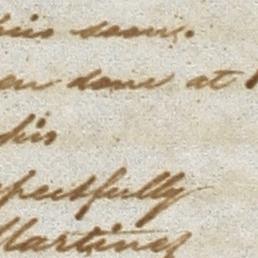 his soon.
en done at
his
pectfully
Martinez